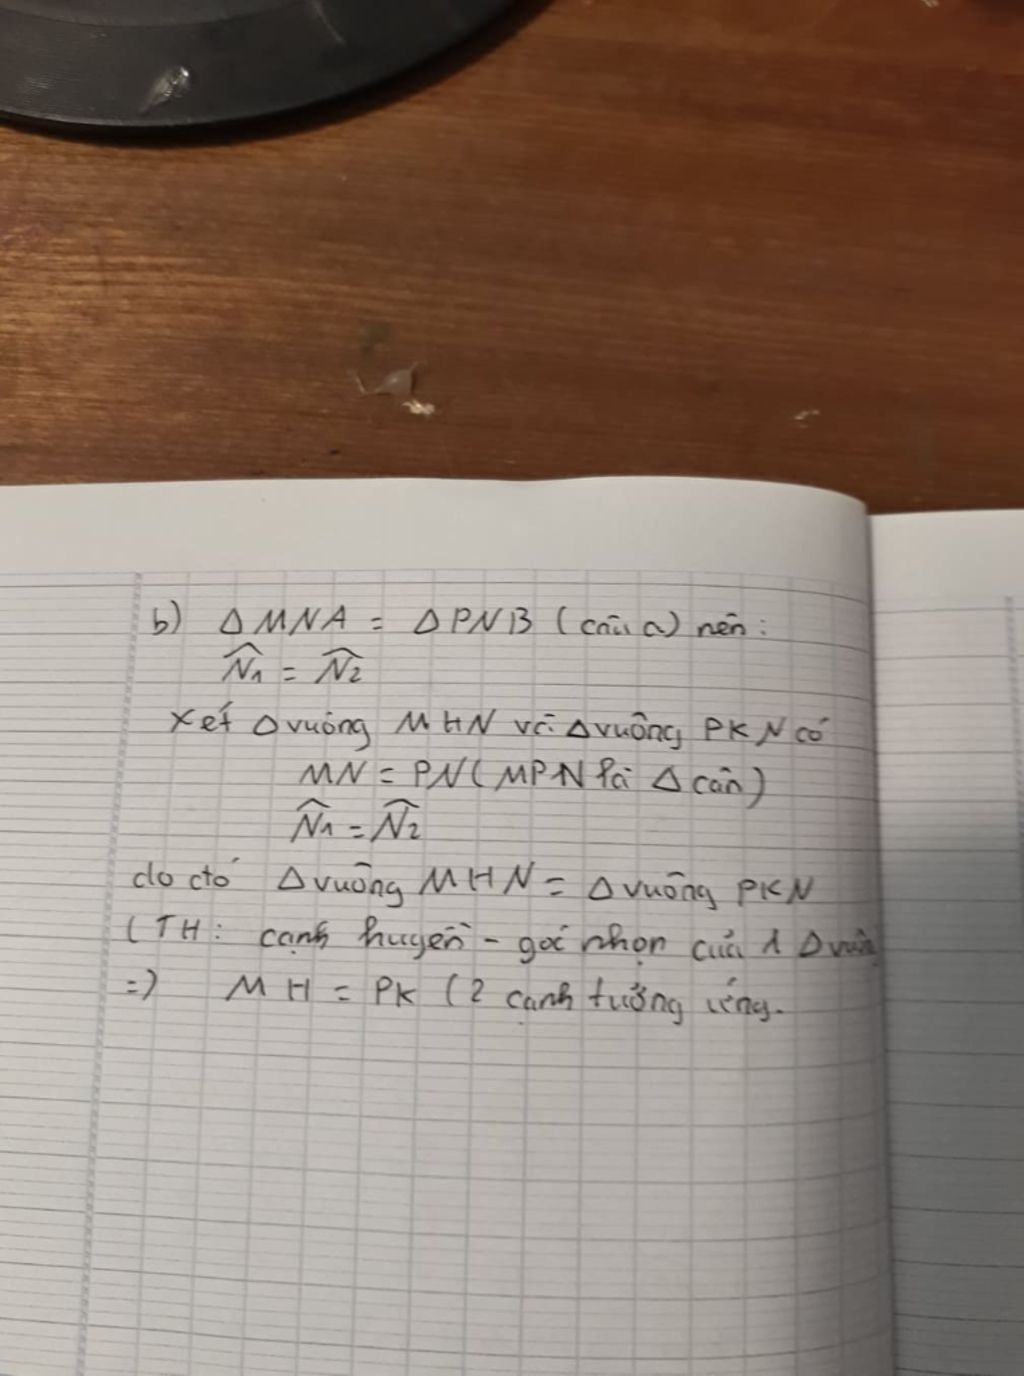 b) ΔMNA = ΔPNB (câu a) nên:
N̂₁ = N̂₂
Xét Δvuông MHN và Δvuông PKN có
MN = PN (MPN là Δ cân)
N̂₁ = N̂₂
do đó Δvuông MHN = Δvuông PKN
(TH: cạnh huyền - góc nhọn của 1 Δ
=) MH = PK (2 cạnh tương ứng.